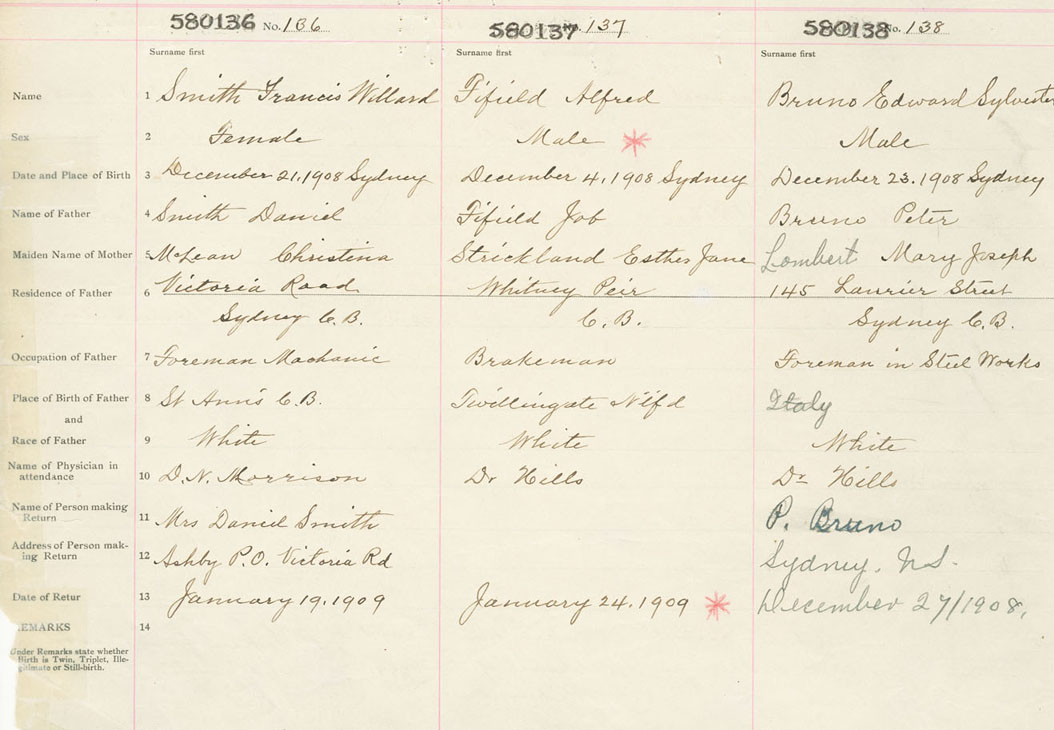 580136 No. 136 580137 137 580138 No. 138
Surname first Surname first Surname first
Name 1 Smith Francis Willard Fifield Alfred Bruno Edward Sylvester
Sex 2 Female Male Male
Date and Place of Birth 3 December 21, 1908 Sydney December 4, 1908 Sydney December 23. 1908 Sydney
Name of Father 4 Smith Daniel Fifield Job Bruno Peter
Maiden Name of Mother 5 McLean Christina Strickland Esther Jane Lombert Mary Joseph
Residence of Father 6 Victoria Road Whitney Peir 145 Laurier Street
Sydney C.B. C.B. Sydney C.B.
Occupation of Father 7 Foreman Machanic Brakeman Foreman in Steel Works
Place of Birth of Father 8 St Ann's C.B. Twillingate Nlf'd Italy
and
Race of Father 9 White White White
Name of Physician in
attendance 10 D. N. Morrison Dr Hills Dr Hills
Name of Person making
Return 11 Mrs Daniel Smith P. Bruno
Address of Person mak-
ing Return 12 Ashby P.O. Victoria Rd Sydney. N.S.
Date of Retur 13 January 19. 1909 January 24. 1909 December 27/1908.
EMARKS 14
Under Remarks state whether
Birth is Twin, Triplet, Ille-
gitimate or Still-birth.